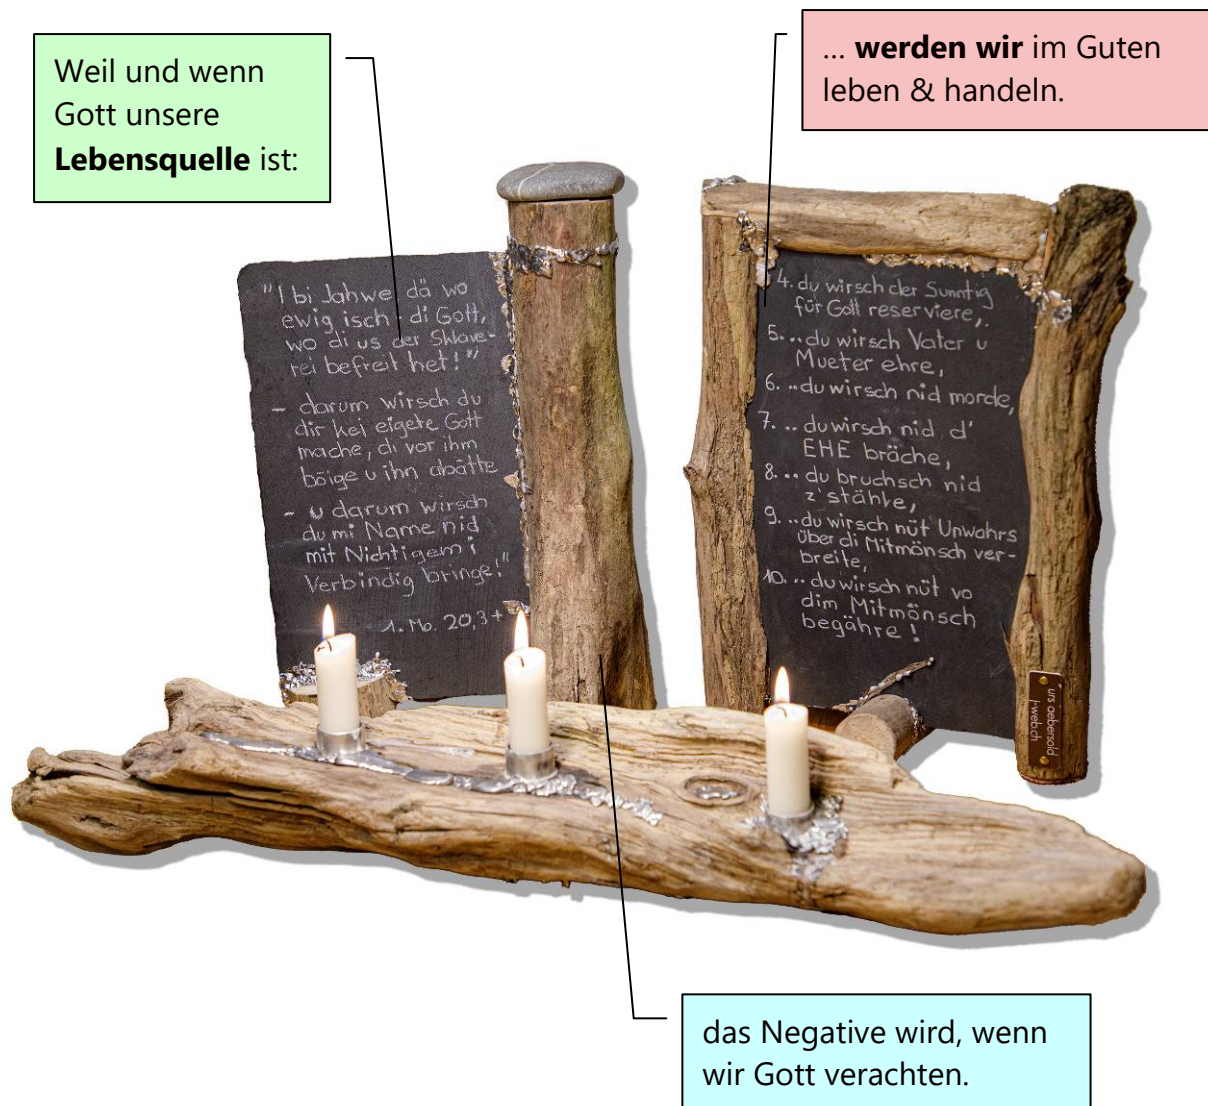 Weil und wenn
Gott unsere
Lebensquelle ist:
... werden wir im Guten
leben & handeln.
"I bi Jahwe, dä wo
ewig isch - di Gott,
wo di us der Sklave-
rei befreit het!"
- darum wirsch du
dir kei eigete Gott
mache, di vor ihm
böige u ihn abätte
- u darum wirsch
du mi Name nid
mit Nichtigem i
Verbindig bringe!"
1. Mo. 20,3+
4. du wirsch der Sunntig
für Gott reserviere,.
5. .. du wirsch Vater u
Mueter ehre,
6. .. du wirsch nid morde,
7. .. du wirsch nid d'
EHE bräche,
8. .. du bruchsch nid
z'stähle,
9. .. du wirsch nüt Unwahrs
über di Mitmönsch ver-
breite,
10. .. du wirsch nüt vo
dim Mitmönsch
begähre!
urs aebersold
das Negative wird, wenn
wir Gott verachten.